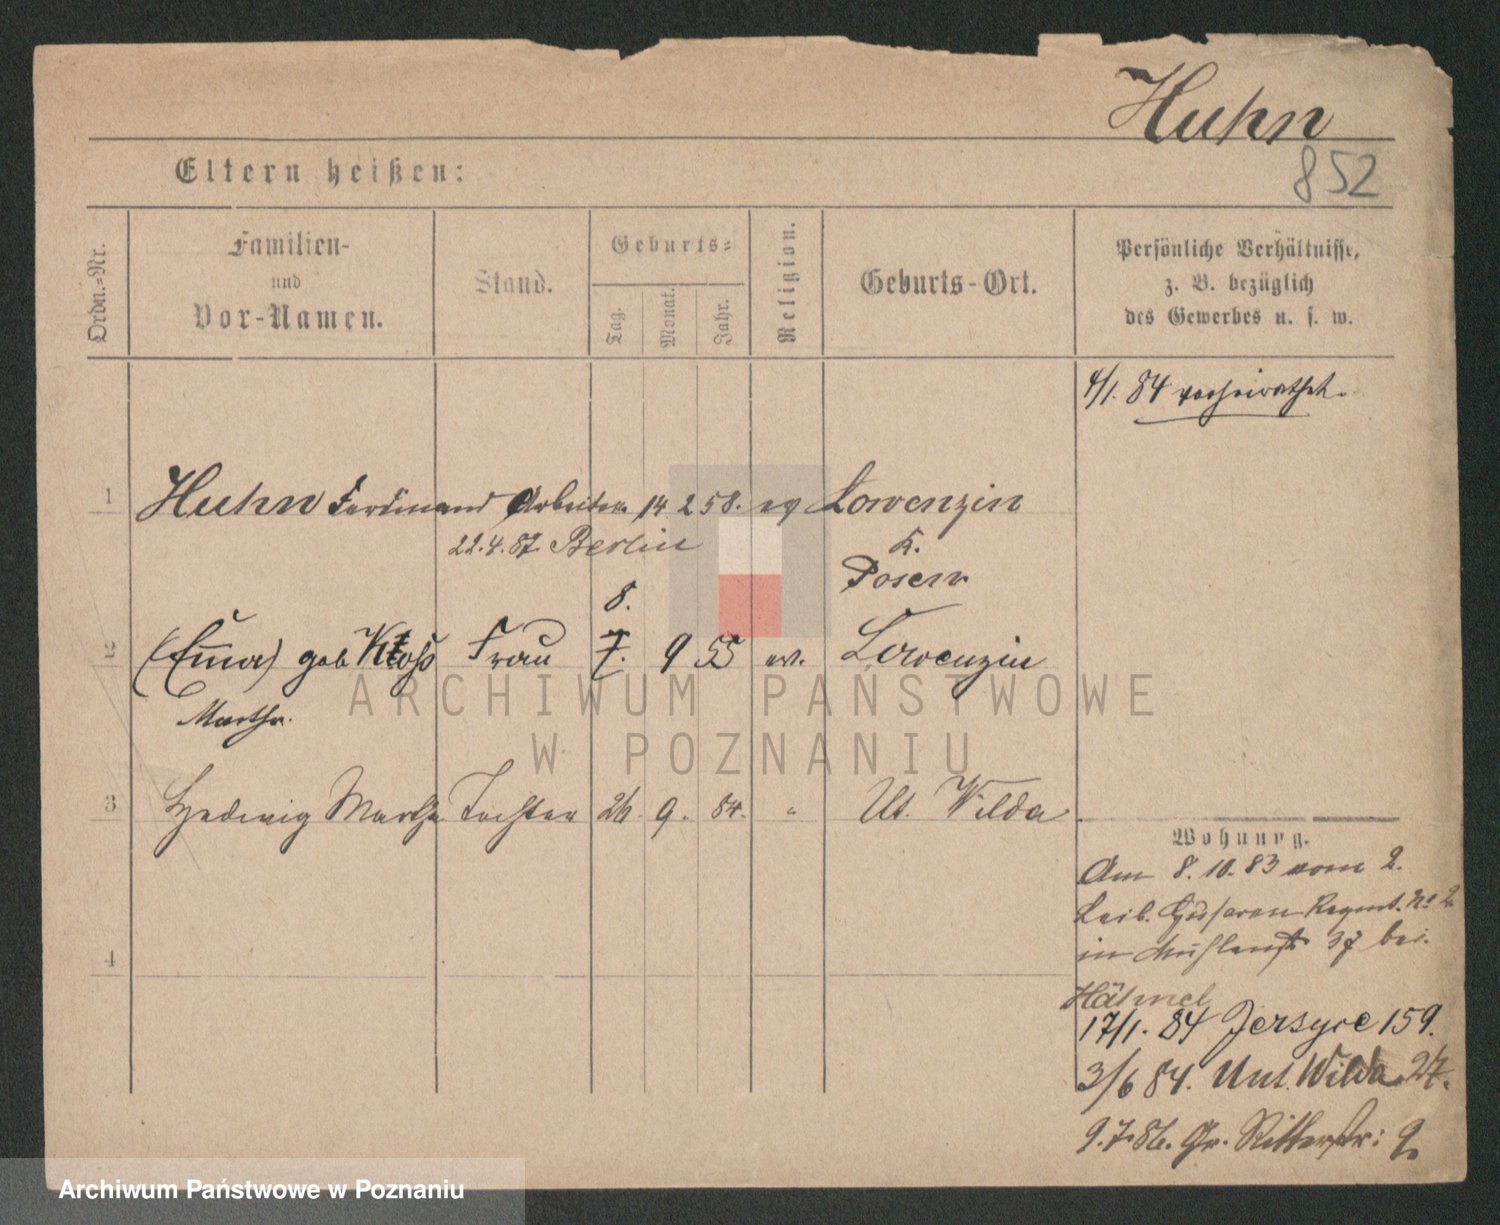 Huhn
852
Eltern heißen:
Ordn.-Nr.
Familien-
und
Vor-Namen.
Stand.
Geburts-
Tag.
Monat.
Jahr.
Religion.
Geburts-Ort.
Persönliche Verhältnisse,
z. B. bezüglich
des Gewerbes u. s. w.
4/1. 84 verheirathet.
1 Huhn Ferdinand Arbeiter 14 2 58. ev Lowenzin
22.4.87. Berlin K.
Posen
8.
2 (Ema) geb Kloß Frau 7. 9 55 ev. Lowenzin
Martha
3 Hedwig Martha Tochter 26. 9. 84. " Ut. Wilda
4
Wohnung.
Am 8. 10. 83 vom 2.
Leib. Husaren Regmt. No 2
in Mühlenstr 37 bei
17/1. 84 Jersyce 159.
3/6 84. Unt. Wilda 27.
9.7.86. Gr. Ritterstr: 9.
ARCHIWUM PAŃSTWOWE
W POZNANIU
Archiwum Państwowe w Poznaniu